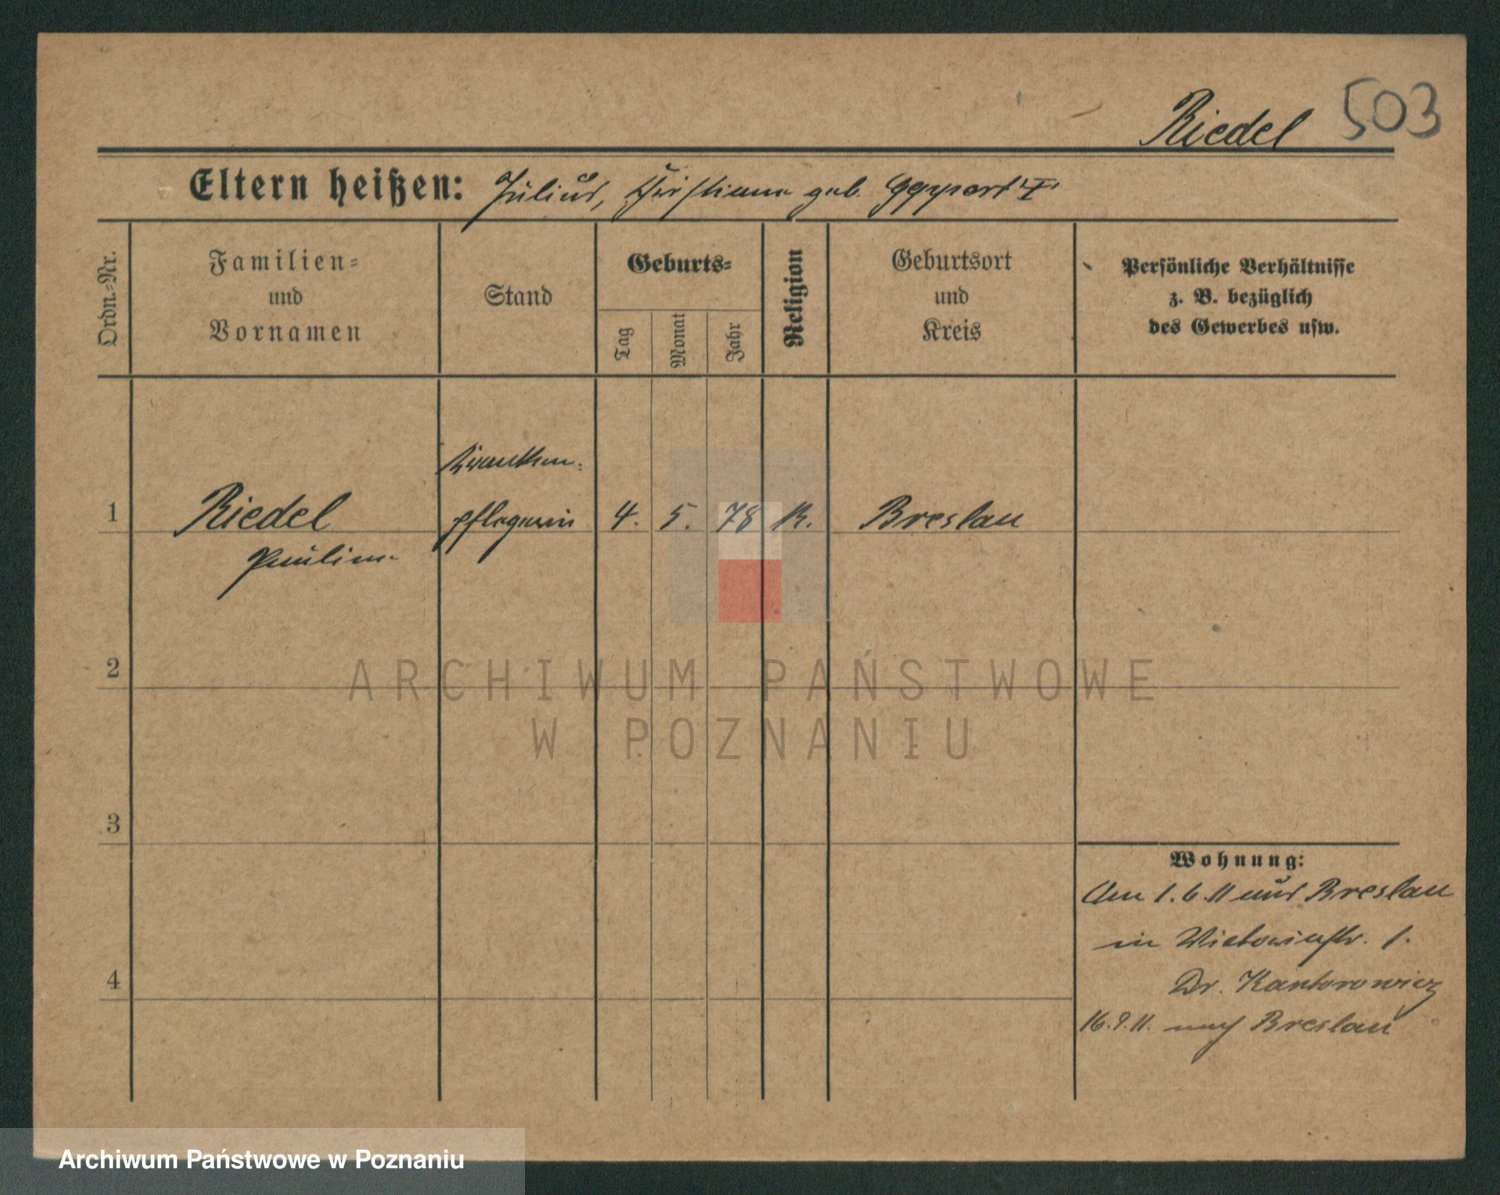 Riedel 503
Eltern heißen: Julius, Christiane geb. Geppert
Ordn.-Nr.
Familien-
und
Vornamen
Stand
Geburts-
Tag
Monat
Jahr
Religion
Geburtsort
und
Kreis
Persönliche Verhältnisse
z. B. bezüglich
des Gewerbes usw.
Kranken-
1 Riedel pflegerin 4. 5. 78 K. Breslau
Pauline
2
ARCHIWUM PAŃSTWOWE
W POZNANIU
3
Wohnung:
Am 1.6.11 aus Breslau
in Viktoriastr. 1.
Dr. Kantorowicz
4
16.9.11. nach Breslau
Archiwum Państwowe w Poznaniu